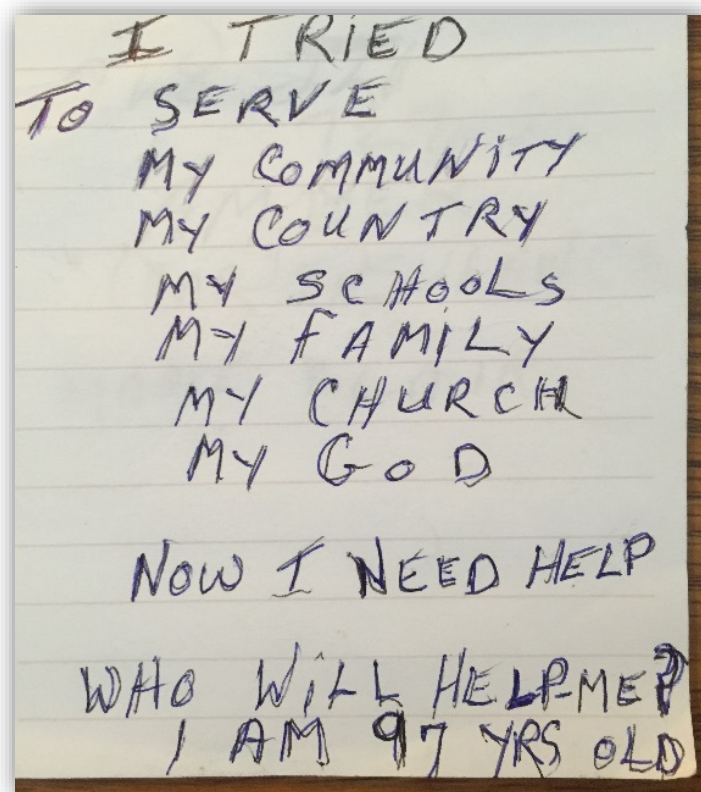 I TRiED
To SERVE
MY CoMMUNiTY
MY COUNTRY
MY SCHooLS
MY FAMILY
MY CHURCH
MY GoD
NOW I NEED HELP
WHO WiLL HELP ME?
I AM 97 YRS OLD